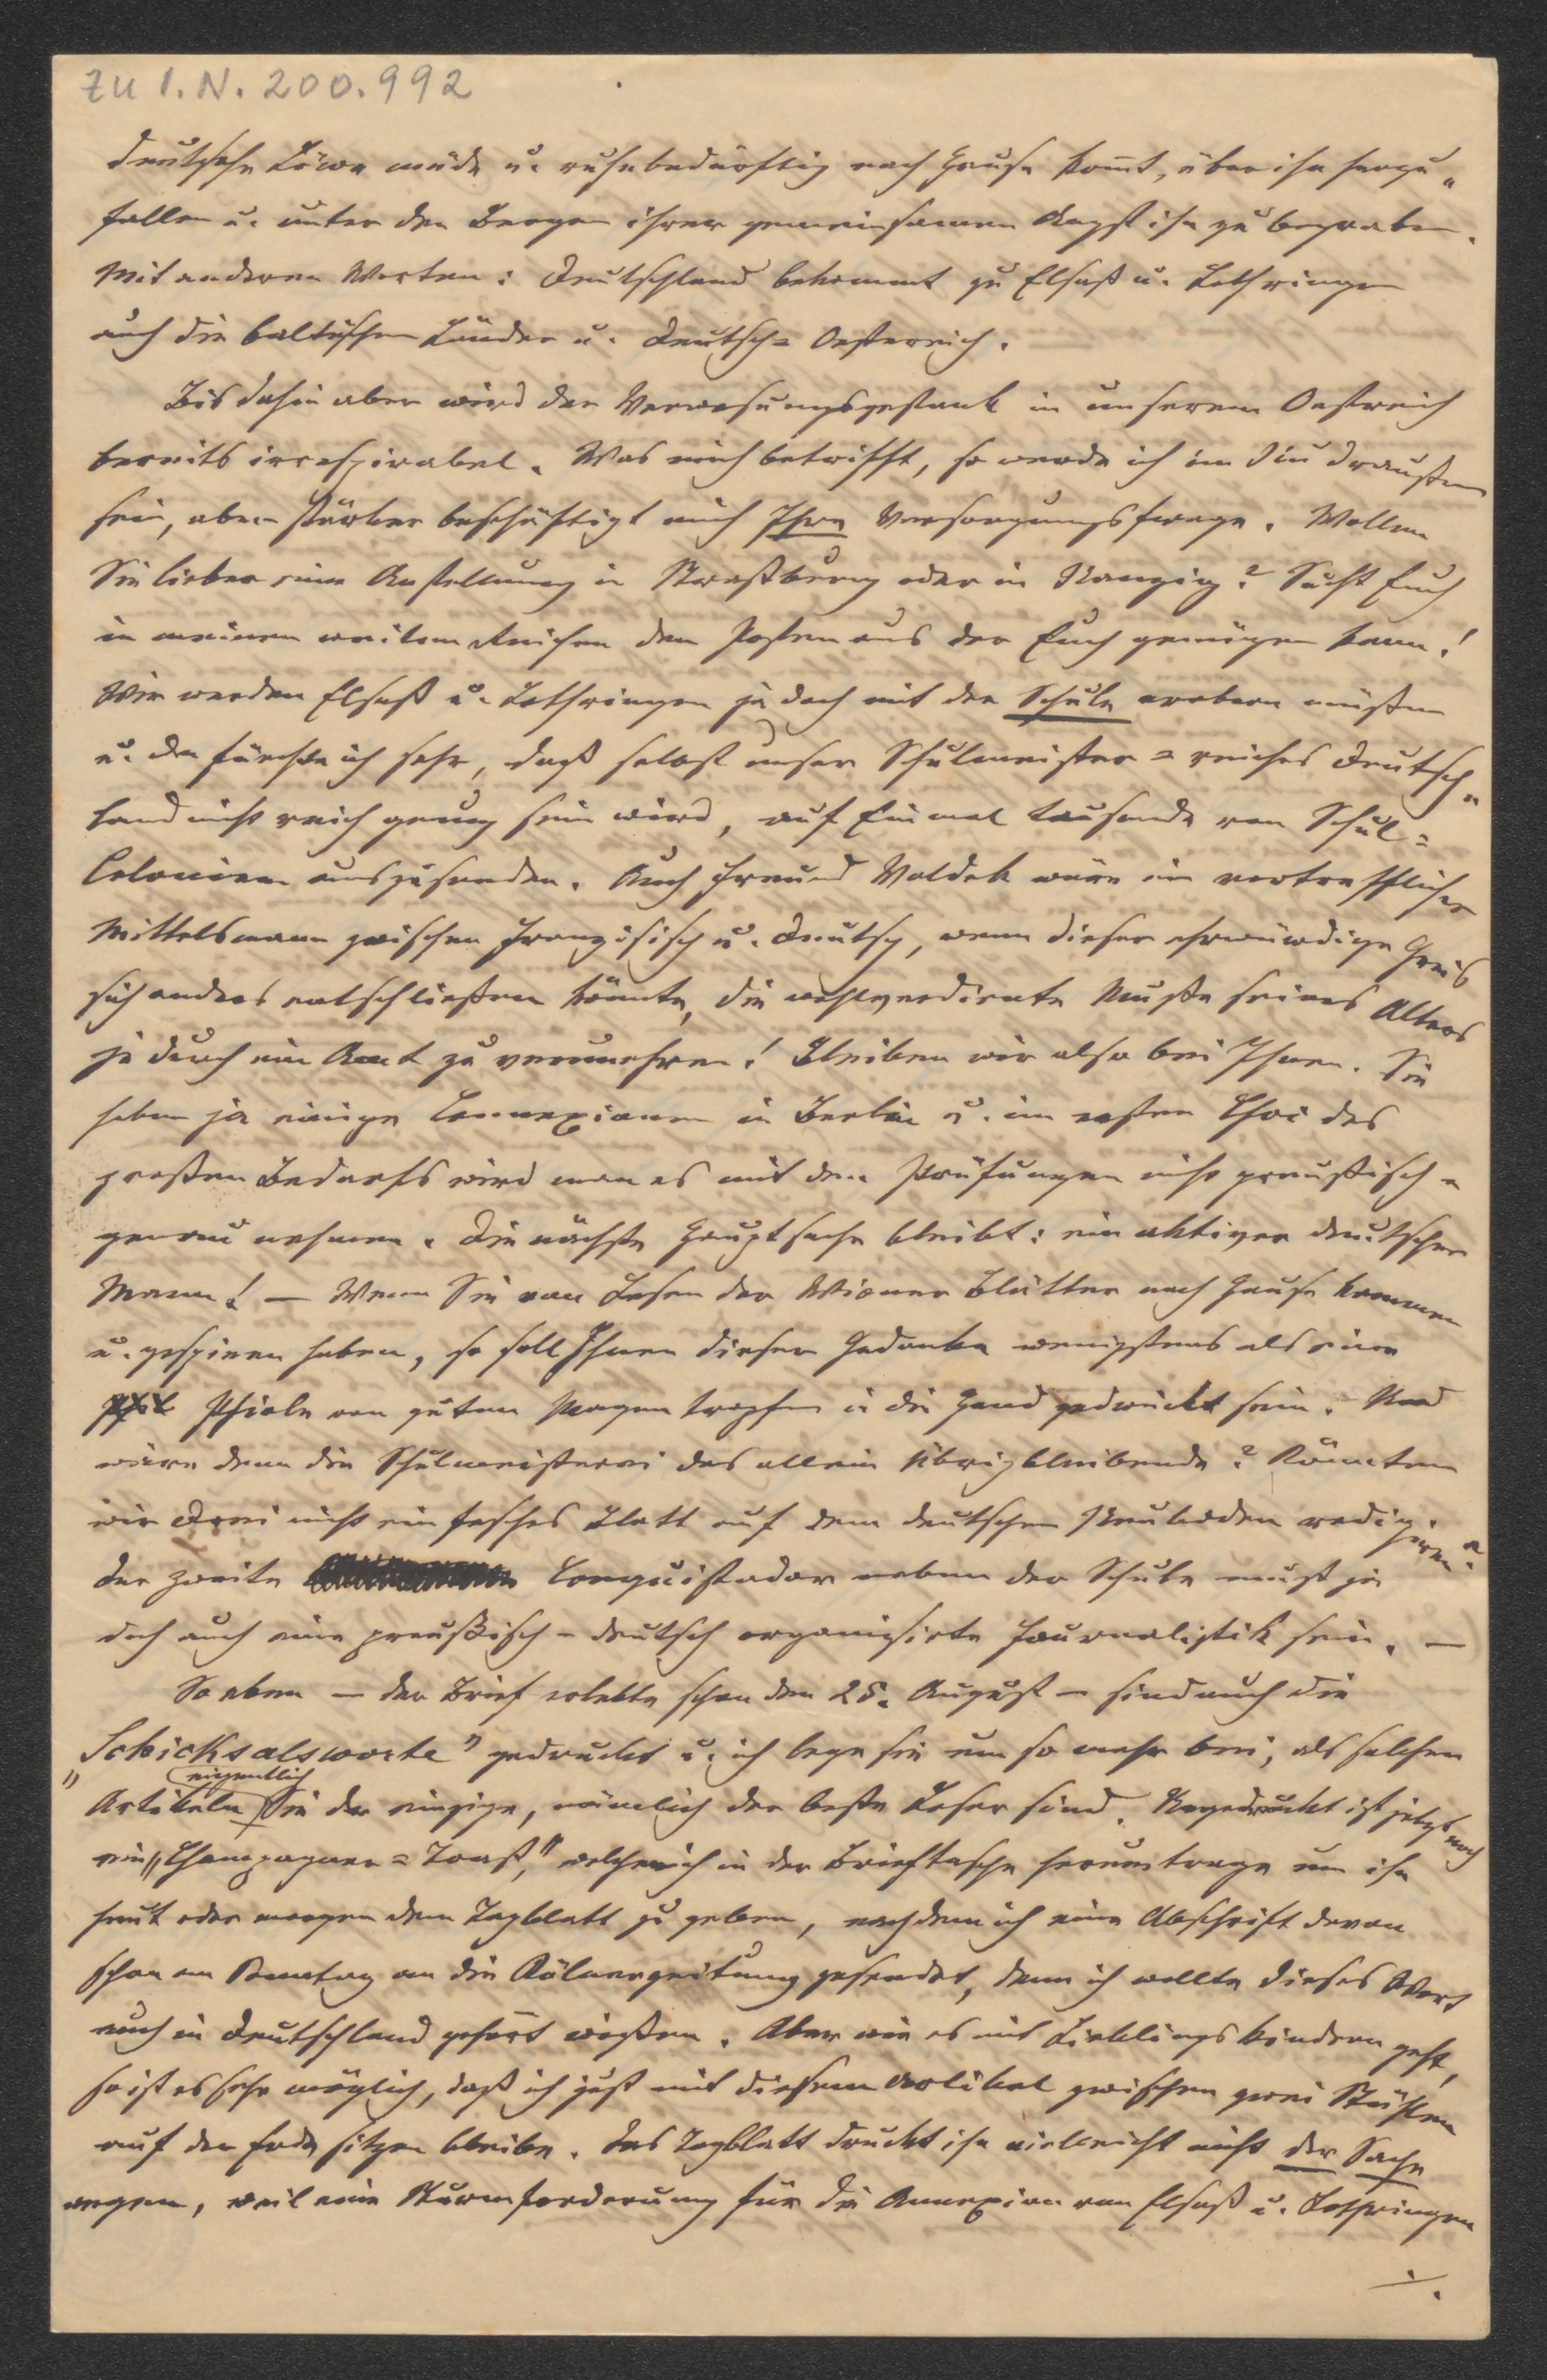 zu I.N. 200.992
deutsche Löwe müde u. ruhebedürftig nach Hause komt, über ihn herzu„
fallen u. unter den Bergen ihrer gemeinsamen Angst ihn zu begraben.
Mit anderen Worten: Deutschland bekommt zu Elsaß u. Lothringen
auch die baltischen Länder u. Deutsch=Oesterreich.
Bis dahin aber wird der Verwesungsgestank in unserem Oestreich
bereits irrespirabel. Was mich betrifft, so werde ich im Nu draußen
sein, aber stärker beschäftigt mich Ihre Versorgungsfrage. Wollen
Sie lieber eine Anstellung in Straßburg oder in Nanzig? Sucht Euch
in meinem weitem Reichen den Posten aus der Euch genügen kann!
Wir werden Elsaß u. Lothringen ja doch mit der Schule erobern müßen
u. da fürchte ich sehr, daß selbst unser Schulmeister=reiches Deutsch„
land nicht reich genug sein wird, auf Einmal tausende von Schul=
Colonien auszusenden. Auch Freund Valdek wäre ein vortrefflicher
Mittelsmann zwischen Französisch u. Deutsch, wenn dieser ehrwürdige Greis
sich anders entschließen könnte, die wohlverdiente Muße seines Alters
je durch ein Amt zu verunehren! Bleiben wir also bei Ihnen. Sie
haben ja einige Connexionen in Berlin u. im ersten Choc des
großen Bedarfs wird man es mit den Prüfungen nicht preußisch-
genau nehmen. Die nächste Hauptsache bleibt: ein aktiver deutscher
Mann! — Wenn Sie vom Lesen der Wiener Blätter nach Hause kommen
u. gespieen haben, so soll Ihnen dieser Gedanke wenigstens als eine
Phiole von guten Magentropfen in die Hand gedrückt sein. Und
wäre denn die Schulmeisterei das allein Übrigbleibende? Könnten
wir Drei nicht ein fesches Blatt auf dem deutschen Neuboden redigiren?
Der zweite Conquistador neben der Schule muß ja
doch auch eine preußisch-deutsch organisirte Journalistik sein. —
So eben — der Brief erlebte schon den 25. August — sind auch die
„Schicksalsworte" gedruckt u. ich lege sie um so mehr bei, als solchen
Artikeln eigentlich Sie der einzige, nämlich der beste Leser sind. Ungedruckt ist jetzt noch
ein „Champagner=Toast," welchen ich in der Brieftasche herumtrage um ihn
heut oder morgen dem Tagblatt zu geben, nachdem ich eine Abschrift davon
schon am Sonntag an die Kölnerzeitung gesendet, denn ich wollte dieses Wort
auch in Deutschland gehört wißen. Aber wie es mit Lieblingskindern geht,
so ist es sehr möglich, daß ich just mit diesem Artikel zwischen zwei Stühlen
auf der Erde sitzen bleibe. Das Tagblatt druckt ihn vielleicht nicht der Sache
wegen, weil eine Sturmforderung für die Annexion von Elsaß u. Lothringen
./.